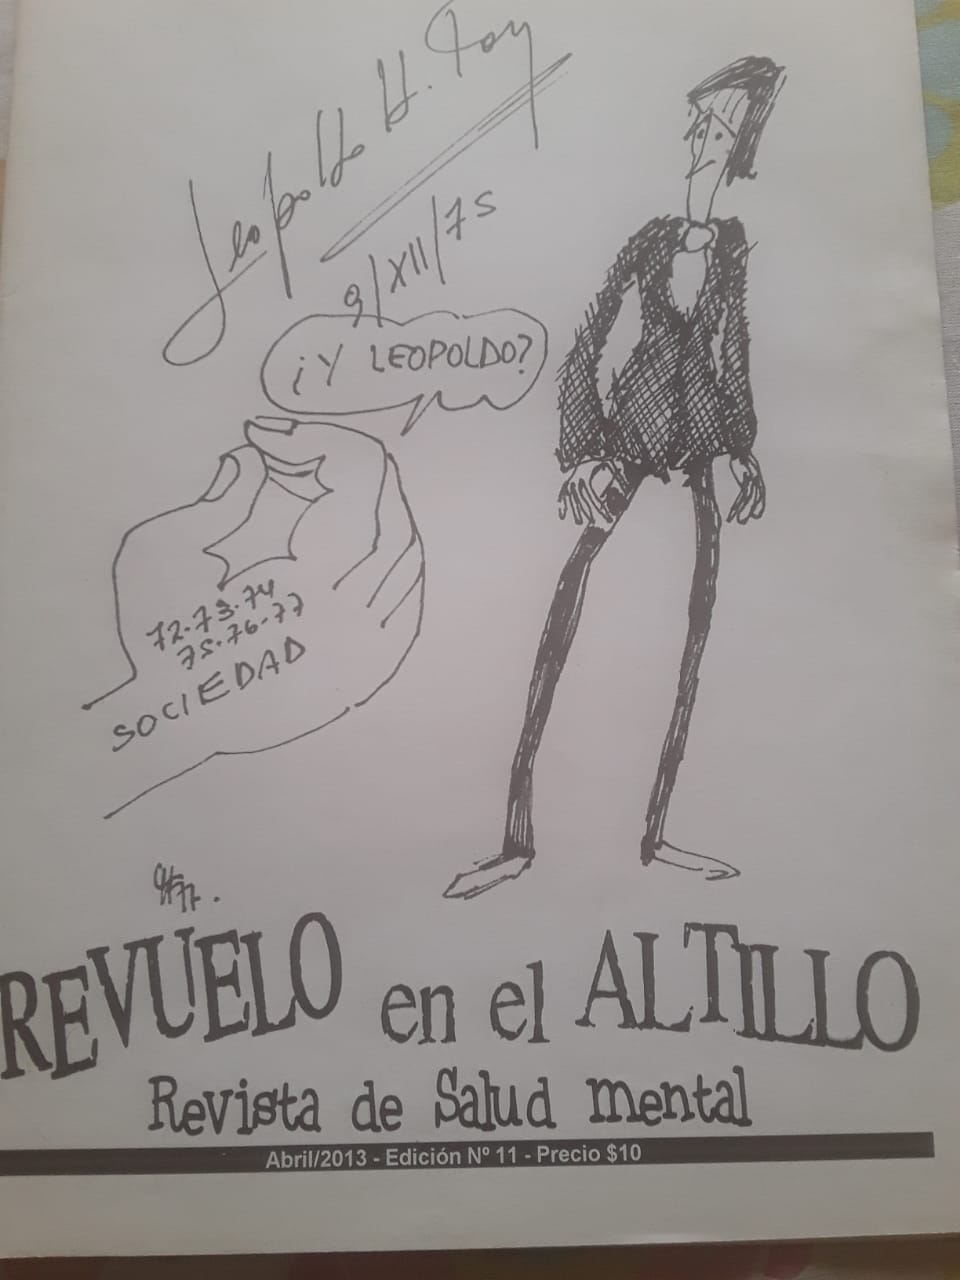 Leopoldo H. Roy
9/XII/75
¡Y LEOPOLDO?
72-73-74
75-76-77
SOCIEDAD
REVUELO en el ALTILLO
Revista de Salud mental
Abril/2013 - Edición Nº 11 - Precio $10